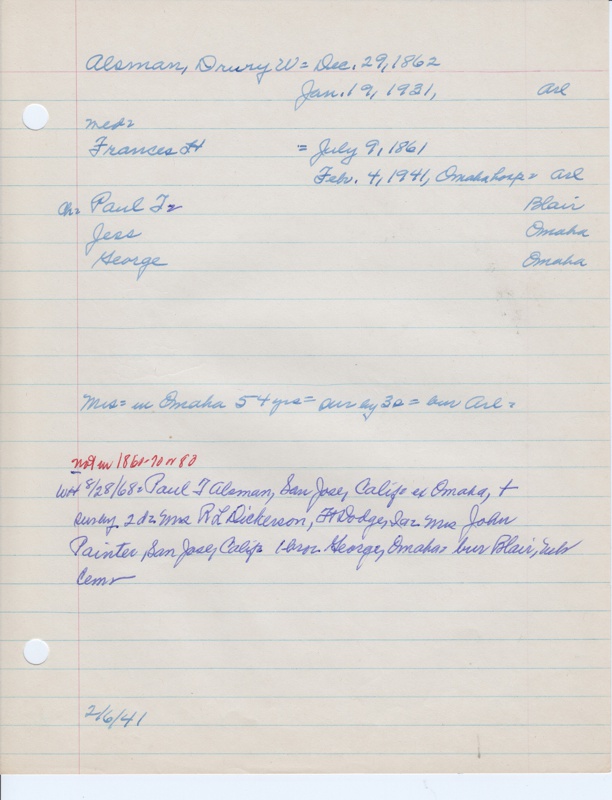 Alsman, Drury W = Dec. 29, 1862
Jan. 19, 1931, Arl
med=
Frances H = July 9, 1861
Febr. 4, 1941, Omaha hosp = Arl
Ch= Paul T= Blair
Jess Omaha
George Omaha
Mrs= in Omaha 54 yrs= sur by 3s = bur Arl =
not in 1860-70 or 80
WH 8/28/68= Paul T Alsman, San Jose, Calif= ex Omaha, +
sur by 2d= Mrs R L Dickerson, Ft Dodge, Ia= Mrs John
Painter, San Jose, Calif= 1-bro= George, Omaha= bur Blair,
Cem=
2/6/41